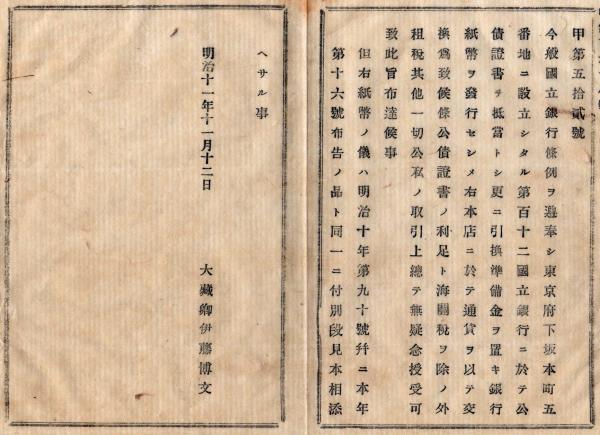 甲第五拾貳號
今般國立銀行條例ヲ遵奉シ東京府下坂本町五
番地ニ設立シタル第百十二國立銀行ニ於テ公
債證書ヲ抵當トシ更ニ引換準備金ヲ置キ銀行
紙幣ヲ發行セシメ右本店ニ於テ通貨ヲ以テ交
換爲致候條公債證書ノ利足ト海關稅ヲ除ノ外
租稅其他一切公私ノ取引上總テ無疑念授受可
致此旨布達候事
但右紙幣ノ儀ハ明治十年第九十號幷ニ本年
第十六號布告ノ品ト同一ニ付別段見本相添
ヘサル事
明治十一年十一月十二日
大藏卿伊藤博文